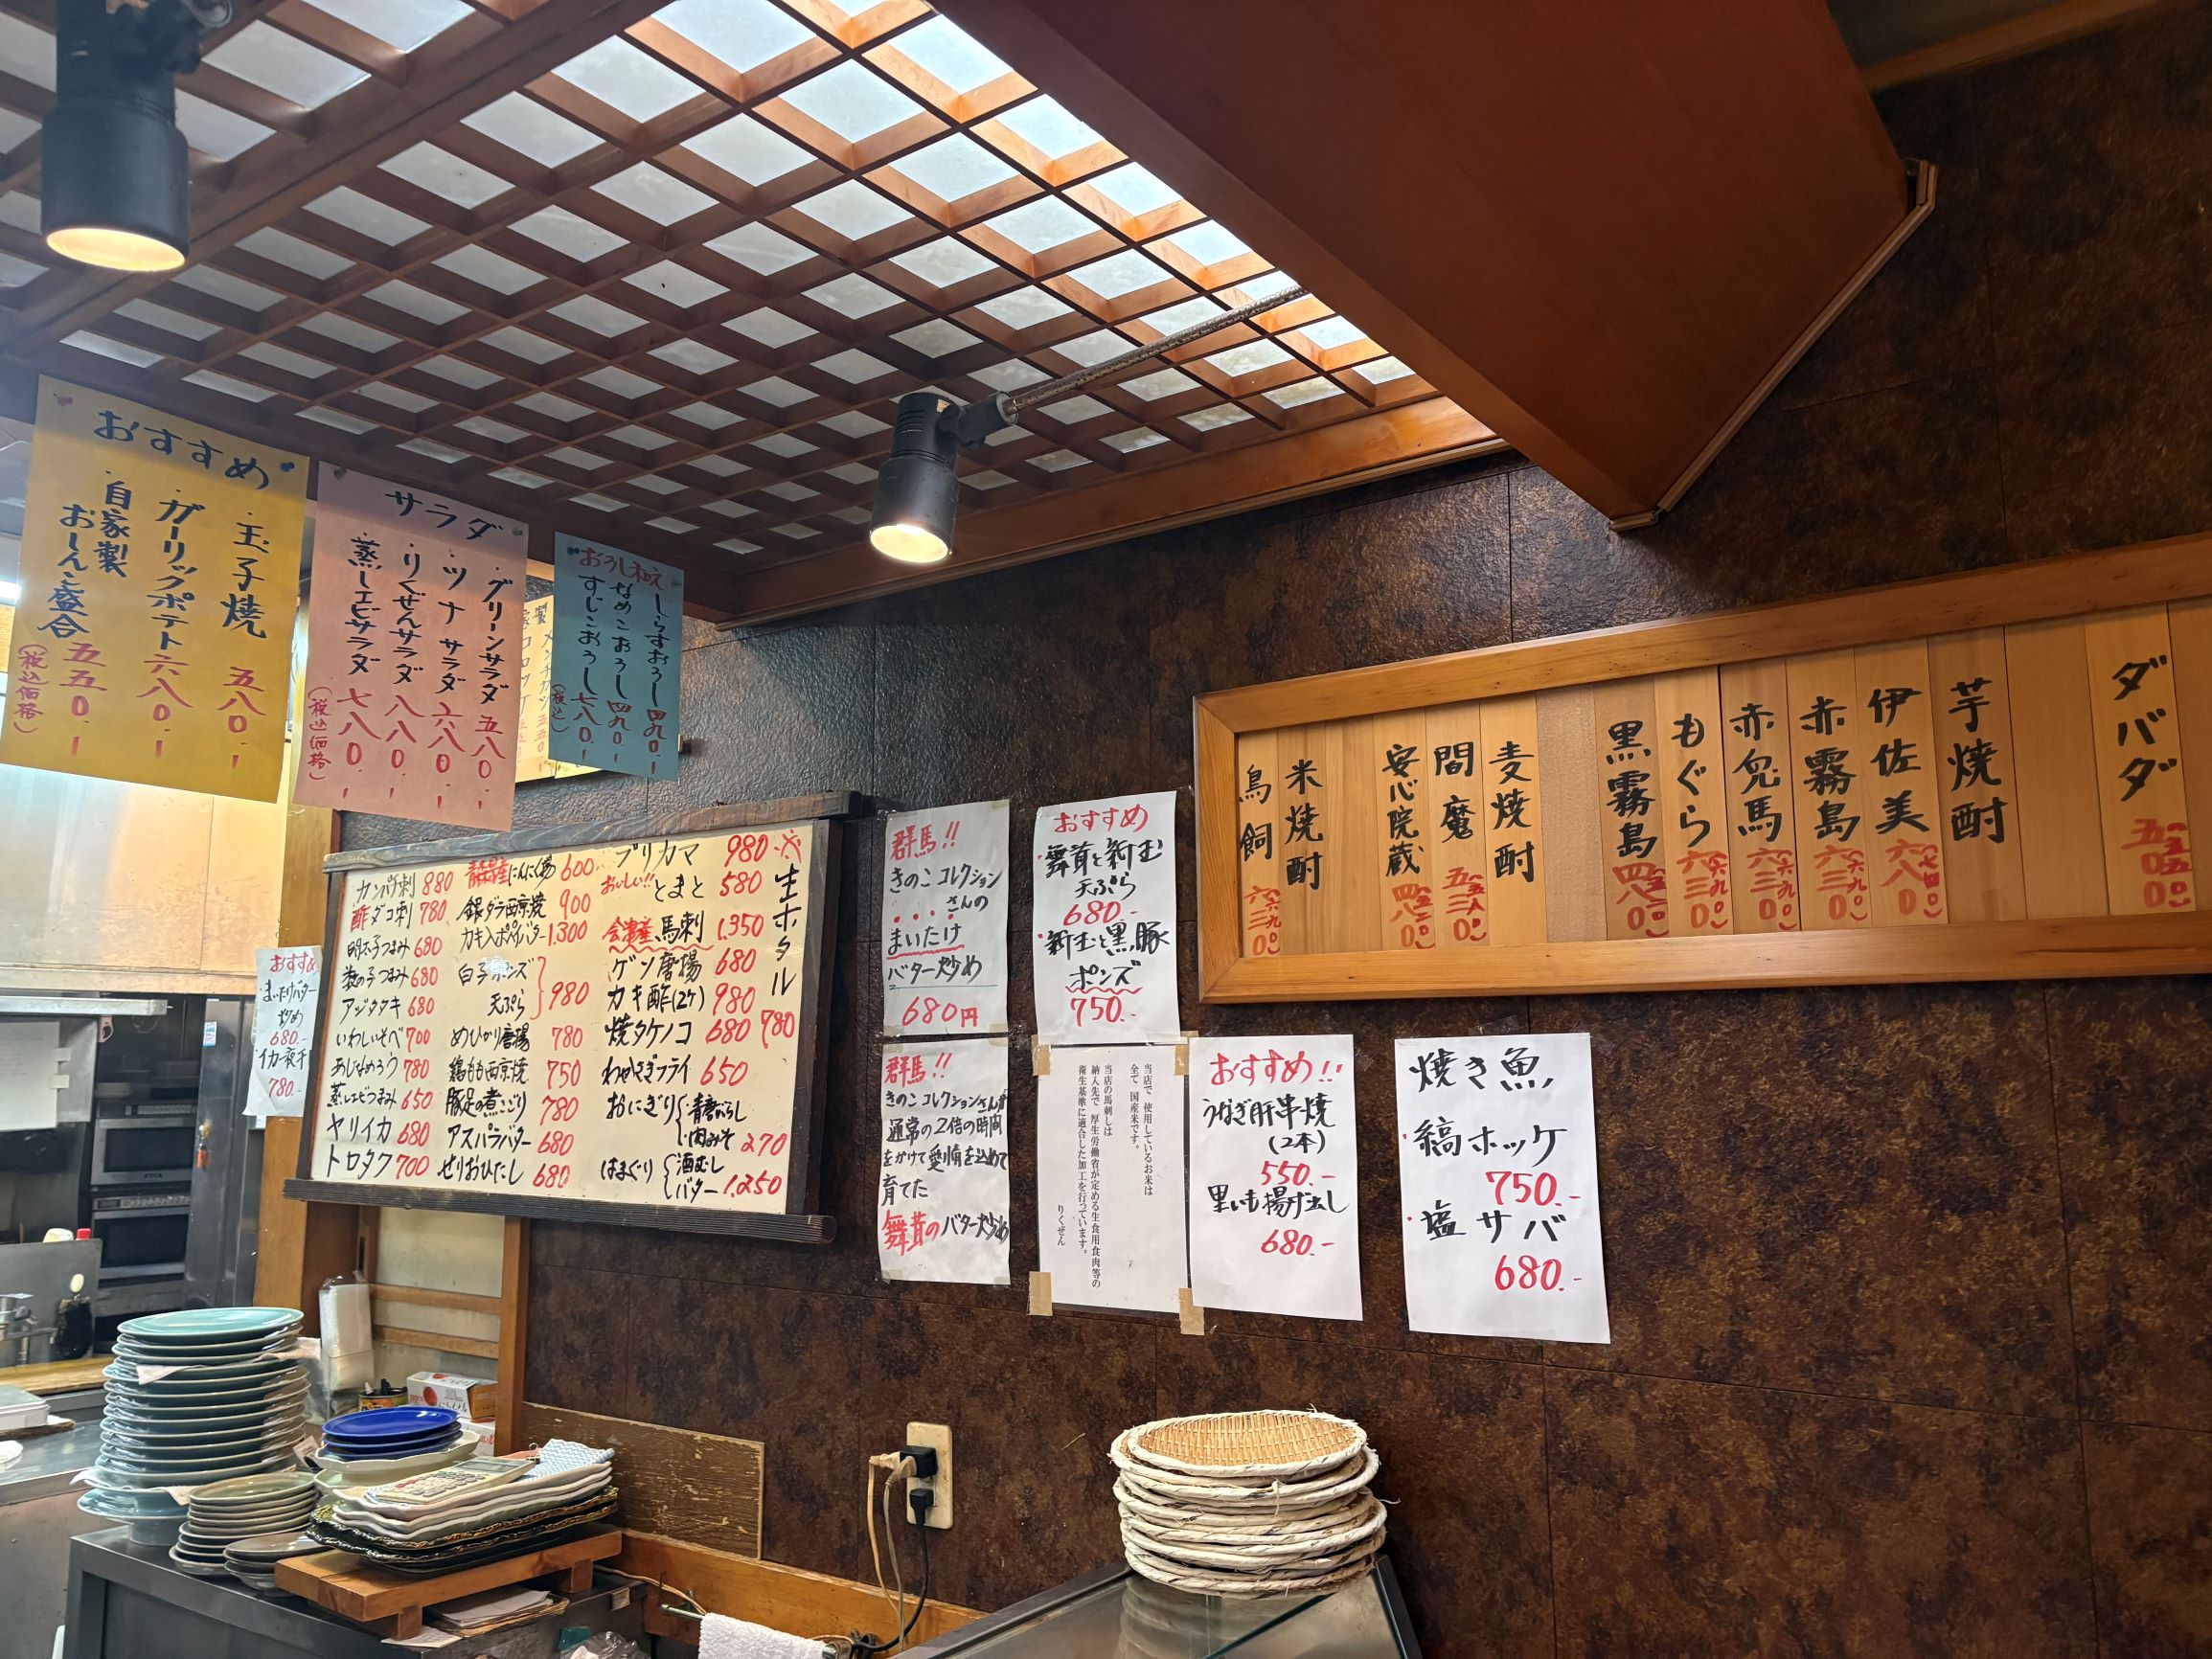 おすすめ
・玉子焼 五八〇.ー
・ガーリックポテト 六八〇.ー
・自家製
おしんこ盛合 五五〇.ー
(税込価格)
サラダ
・グリーンサラダ 五八〇.ー
・ツナサラダ 六八〇.ー
・りくぜんサラダ 八八〇.ー
・蒸しエビサラダ 七八〇.ー
(税込価格)
おろし和え
しらすおろし 四九〇.ー
なめこおろし 四九〇.ー
すじこおろし 七八〇.ー
(税込)
製
メンチカツ 五五〇.ー
コロッケ
おすすめ
・まいたけバター
炒め
680.-
・イカ一夜干
780.-
カンパチ刺 880
酢ダコ刺 780
明太子つまみ 680
数の子つまみ 680
アジタタキ 680
いわしいそべ 700
あじなめろう 780
蒸しエビつまみ 650
ヤリイカ 680
トロタク 700
青森県産にんにく揚 600
銀ダラ西京焼 900
カキ入ホバター 1,300
白子ポンズ
天ぷら 980
めひかり唐揚 780
鶏もも西京焼 750
豚足の煮こごり 780
アスパラバター 680
せりおひたし 680
ブリカマ 980
おいしい!! とまと 580
会津産 馬刺 1,350
ゲソ唐揚 680
カキ酢(2ケ) 980
焼タケノコ 680
わかさぎフライ 650
おにぎり 青唐がらし
肉みそ 270
はまぐり 酒むし
バター 1,250
※生ホタル 780
群馬!!
きのこコレクション
さんの
まいたけ
バター炒め
680円
おすすめ
・舞茸と新玉
天ぷら
680.-
・新玉と黒豚
ポンズ
750.-
群馬!!
きのこコレクションさんが
通常の2倍の時間
をかけて愛情を込めて
育てた
舞茸のバター炒め
当店で 使用しているお米は
全て 国産米です。
当店の馬刺しは
納入先で 厚生労働省が定める生食用食肉等の
衛生基準に適合した加工を行っています。
りくぜん
おすすめ!!
うなぎ肝串焼
(2本)
550.-
里いも揚げ出し
680.-
焼き魚
・縞ホッケ
750.-
・塩サバ
680.-
ダバダ 五五〇
芋焼酎
伊佐美 六八〇(七四〇)
赤霧島 六三〇(六九〇)
赤兎馬 六三〇(六九〇)
もぐら 六三〇(六九〇)
黒霧島 四八〇
麦焼酎
閻魔 五三〇
安心院蔵 四八〇
米焼酎
鳥飼 六三〇